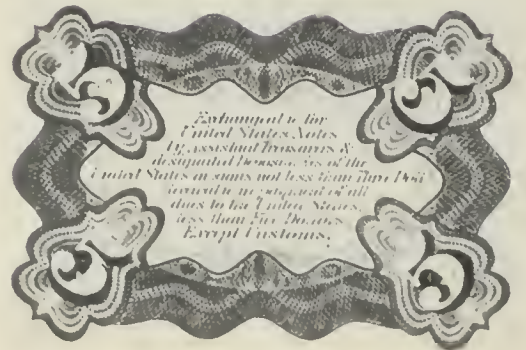 Exchangeable for
United States Notes
by assistant Treasurers &
designated Depositaries of the
United States in sums not less than Three Doll
received in payment of all
dues to the United States,
less than Five Dollars
Except Customs.